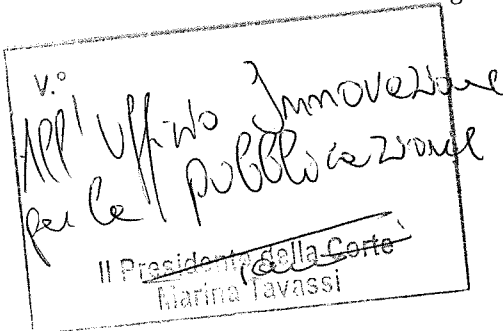 V.°
All' Ufficio Innovazione
per la pubblicazione
Il Presidente della Corte
Marina Tavassi